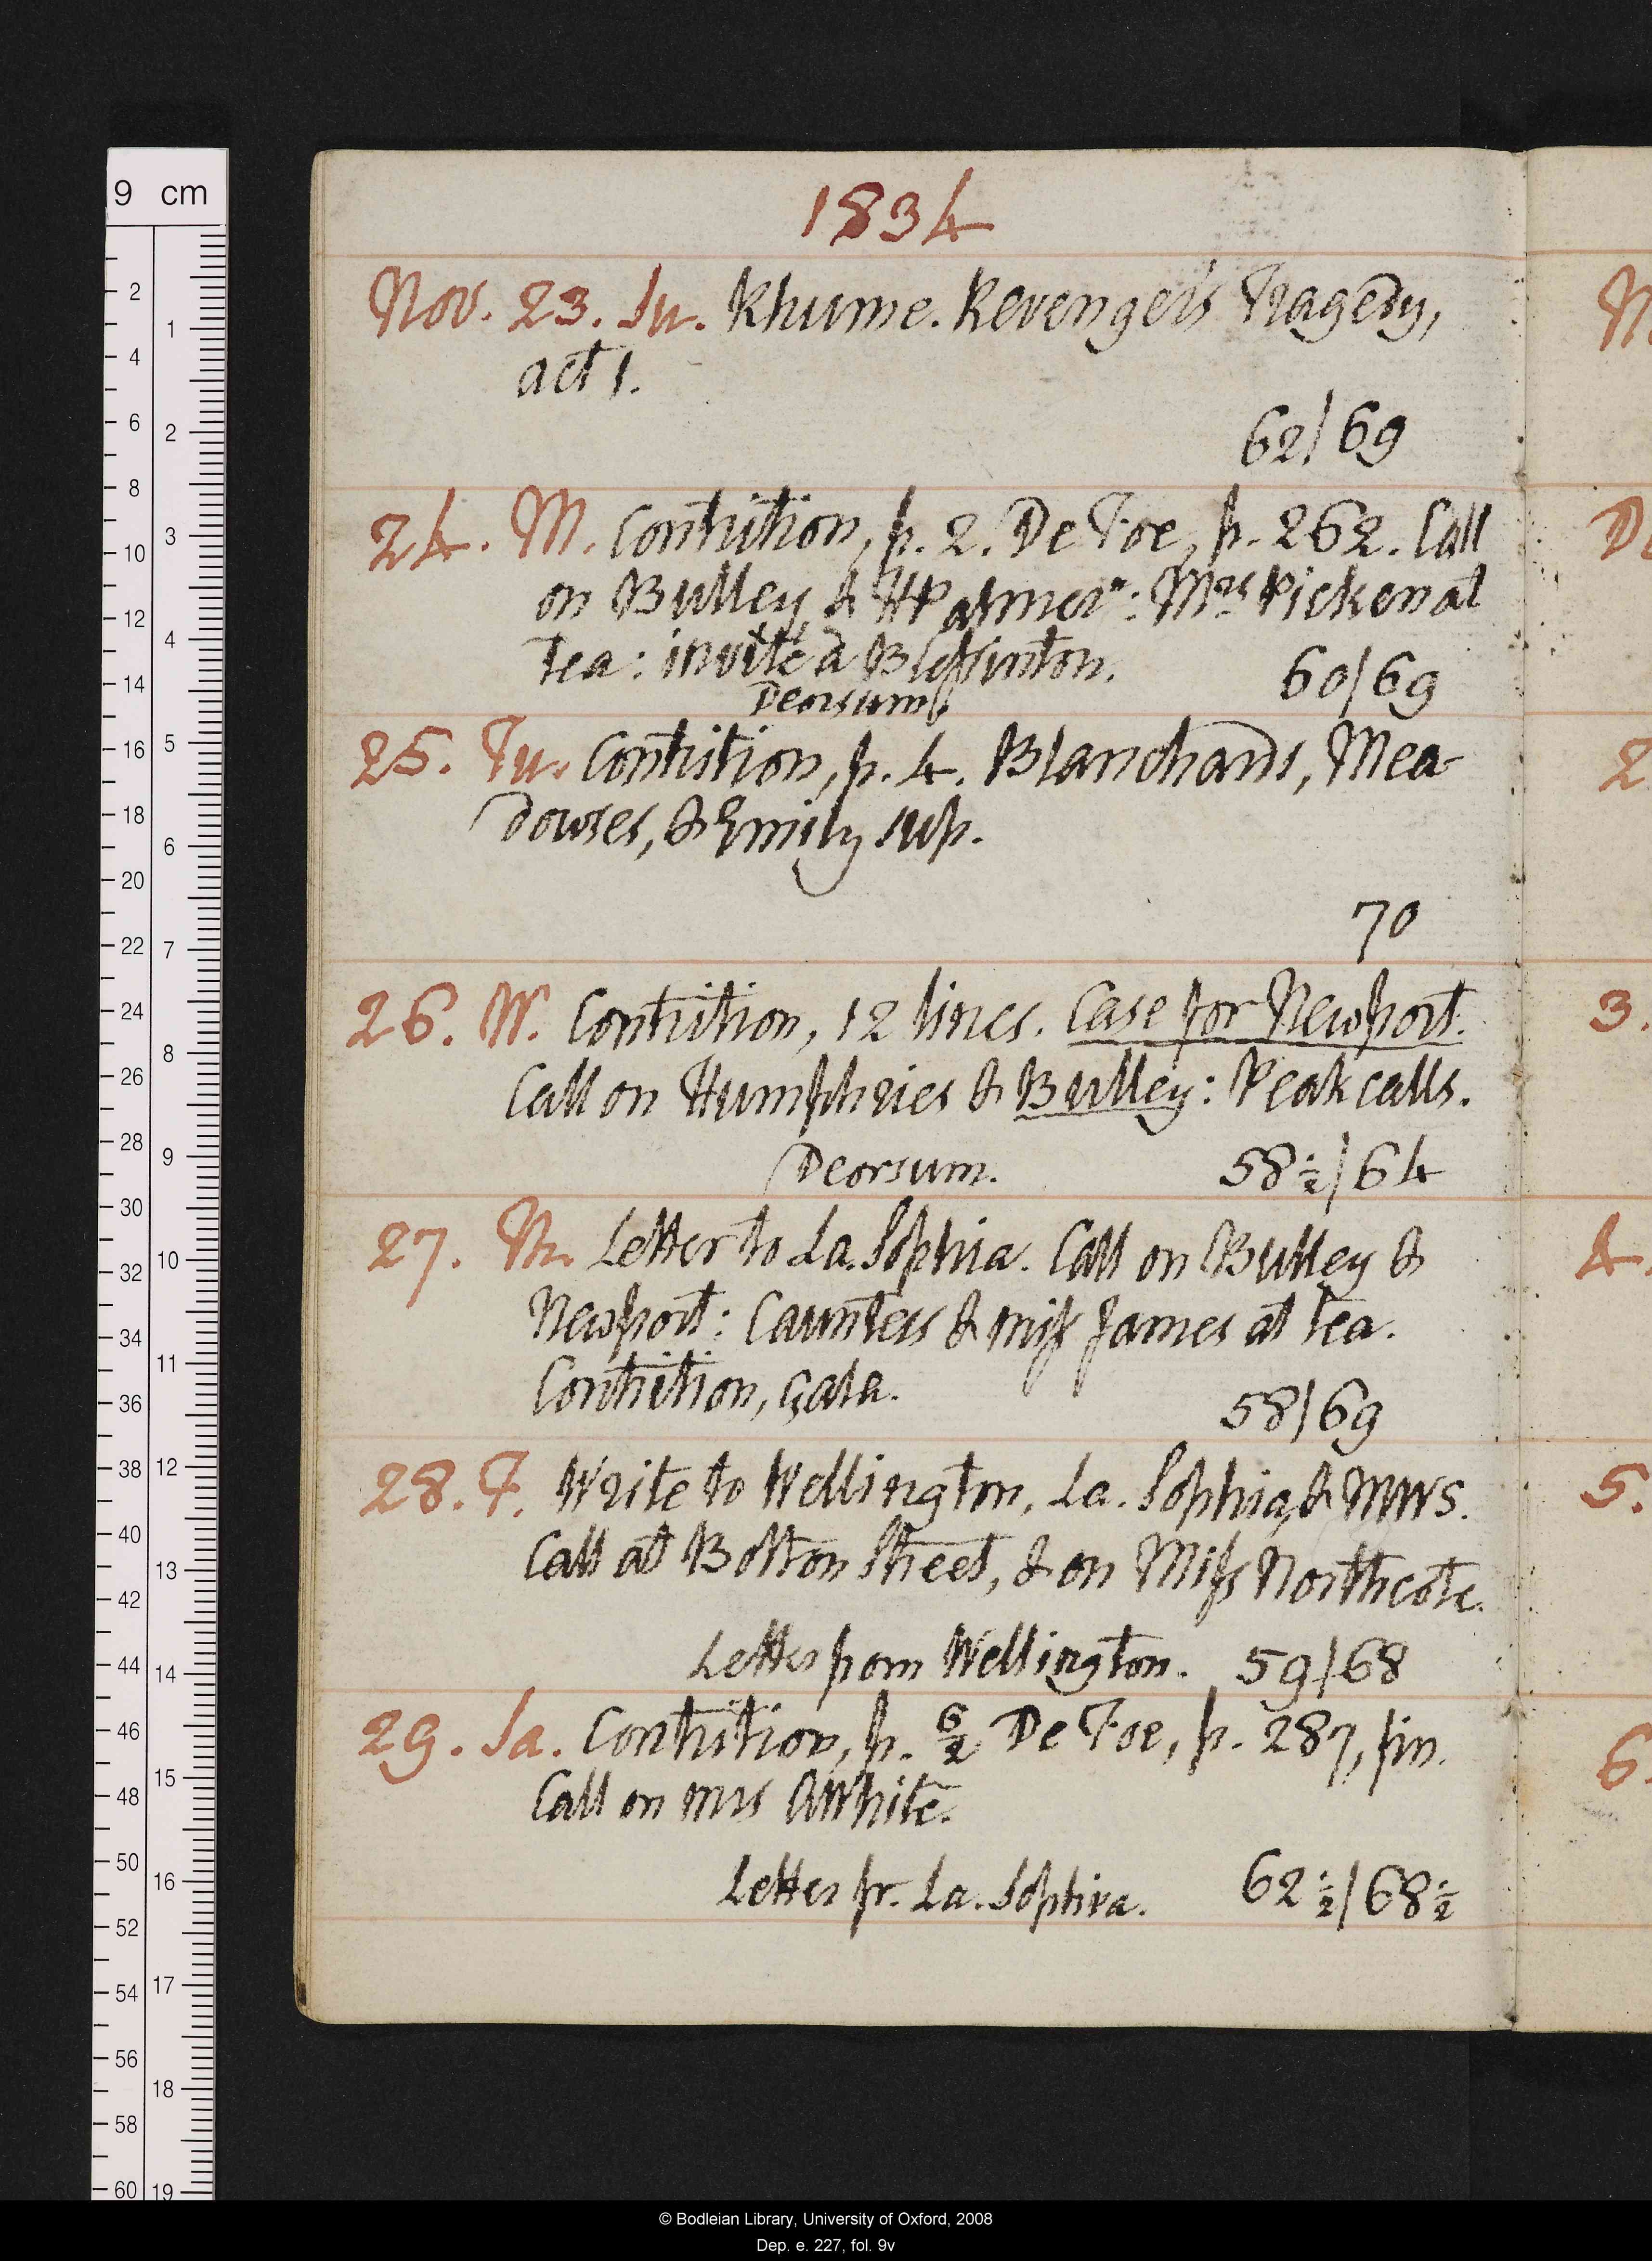 1834
Nov. 23. Su. Rhume. Revenger's Tragedy,
act 1.
62/69
24. M. Contrition, p. 2. De Foe, p. 262. Call
on Bulley & HPalmer*: Mrs Picken at
tea: invité à Blessinton.
Deorsum.
60/69
25. Tu. Contrition, p. 4. Blanchards, Mea-
dowses, & Emily sup.
70
26. W. Contrition, 12 lines. Case for Newport.
Call on Humphries & Bulley: Peak calls.
Deorsum. 58½/64
27. Th. Letter to La. Sophia. Call on Bulley &
Newport: Caunters & miss James at tea.
Contrition, çala.
58/69
28. F. Write to Wellington, La. Sophia, & MWS.
Call at Bolton Street, & on Miss Northcote.
Letter from Wellington. 59/68
29. Sa. Contrition, p. 6/2 De Foe, p. 287, fin.
Call on mrs AWhite.
Letter fr. La. Sophia. 62½/68½
9 cm
2
4
6
8
10
12
14
16
18
20
22
24
26
28
30
32
34
36
38
40
42
44
46
48
50
52
54
56
58
60
1
2
3
4
5
6
7
8
9
10
11
12
13
14
15
16
17
18
19
2
3.
4
5.
6.
© Bodleian Library, University of Oxford, 2008
Dep. e. 227, fol. 9v